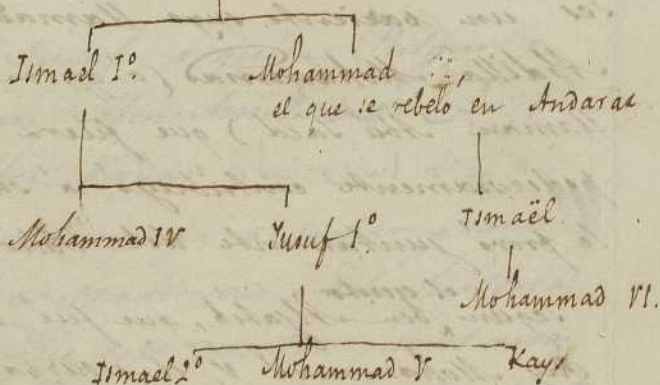 Ismael 1º. Mohammad
el que se rebeló en Andarax
Mohammad IV Yusuf 1º. Ismaël
Mohammad VI.
Ismael 2º Mohammad V Kays